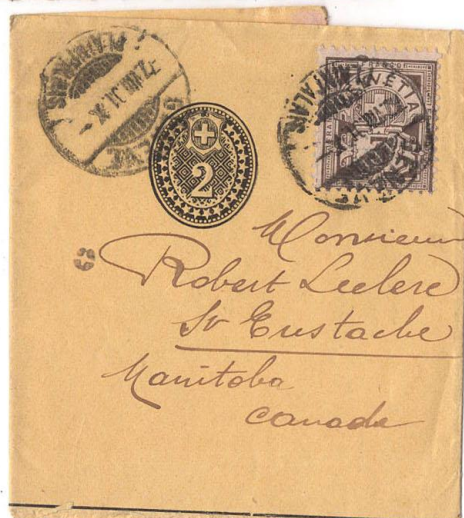 GENÈVE
MANDATS
2
HELVETIA
Monsieur
Robert Leclerc
St Eustache
Manitoba
Canada